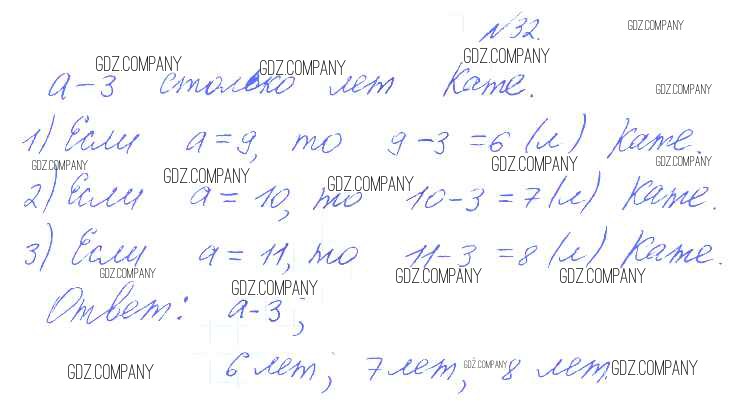 №32.
GDZ.COMPANY
GDZ.COMPANY GDZ.COMPANY GDZ.COMPANY
a-3 столько лет Кате.
GDZ.COMPANY
1) Если a=9, то 9-3=6(л) Кате.
GDZ.COMPANY GDZ.COMPANY GDZ.COMPANY GDZ.COMPANY GDZ.COMPANY
2) Если a=10, то 10-3=7(л) Кате.
3) Если a=11, то 11-3=8(л) Кате.
GDZ.COMPANY GDZ.COMPANY GDZ.COMPANY GDZ.COMPANY
Ответ: a-3;
6 лет, 7 лет, 8 лет.
GDZ.COMPANY GDZ.COMPANY GDZ.COMPANY